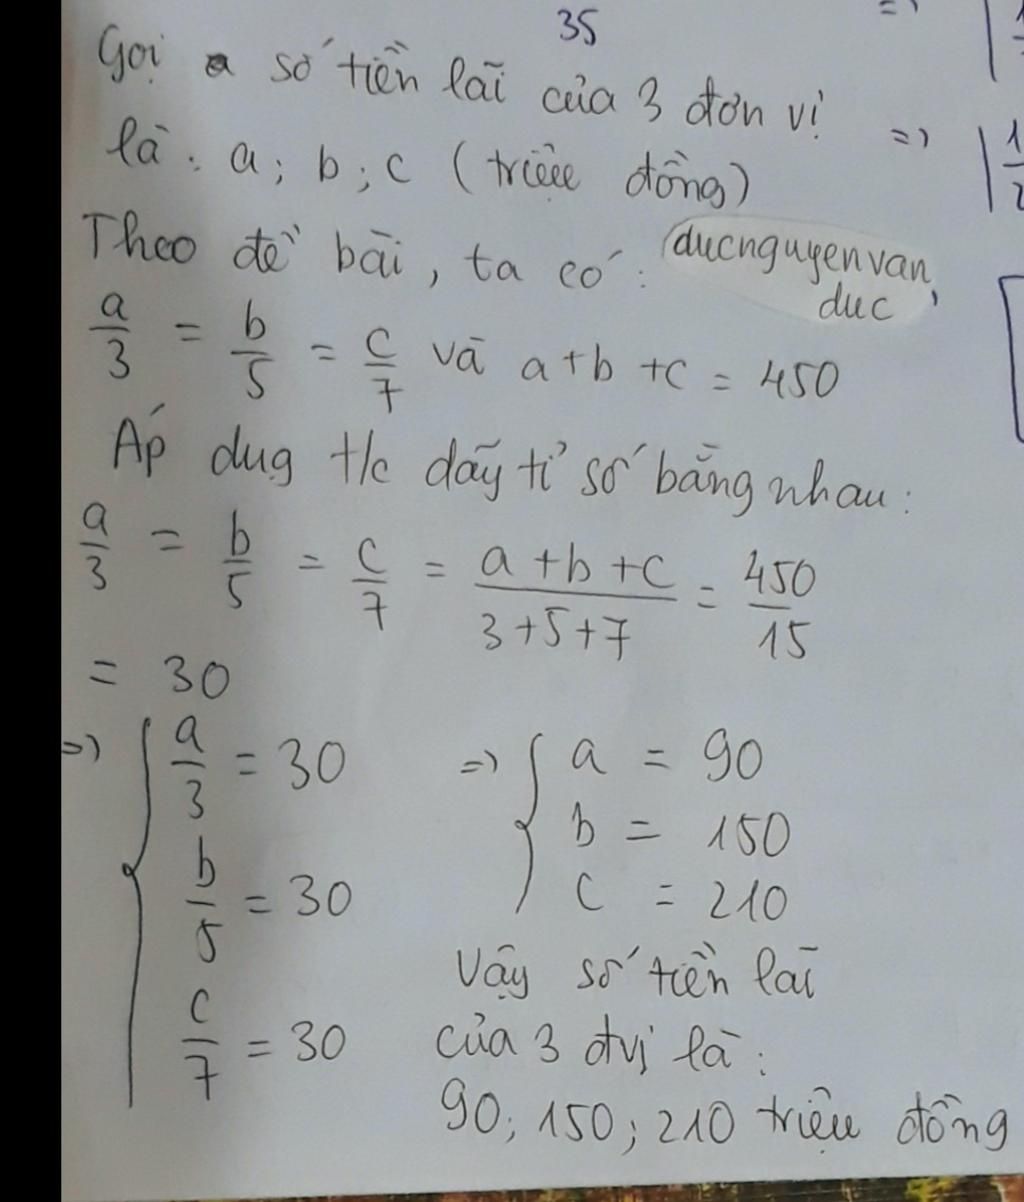 35
Gọi số tiền lãi của 3 đơn vị
là : a ; b ; c ( triệu đồng)
Theo đề bài, ta có :
ducnguyenvan
duc
a/3 = b/5 = c/7 và a + b + c = 450
Áp dug t/c dãy tỉ số bằng nhau :
a/3 = b/5 = c/7 = a + b + c / 3 + 5 + 7 = 450/15
= 30
=> { a/3 = 30 => { a = 90
b = 150
b/5 = 30 c = 210
Vậy số tiền lãi
c/7 = 30 của 3 đvị là :
90; 150; 210 triệu đồng